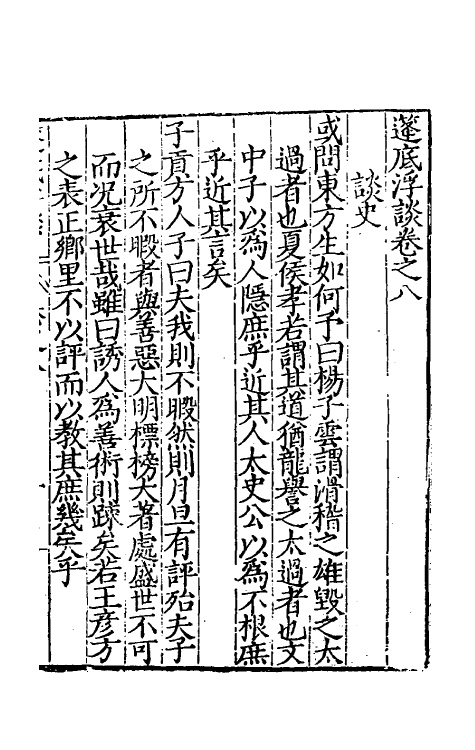 蓬底浮談卷之八
談史
或問東方生如何予曰楊子雲謂滑稽之雄毀之太
過者也夏侯孝若謂其道猶龍譽之太過者也文
中子以爲人隱庶乎近其人太史公以爲不根庶
乎近其言矣
子貢方人子曰夫我則不暇然則月旦有評殆夫子
之所不暇者與善惡大明標榜大著處盛世不可
而况衰世哉雖曰誘人爲善術則踈矣若王彦方
之表正鄉里不以評而以教其庶幾矣乎